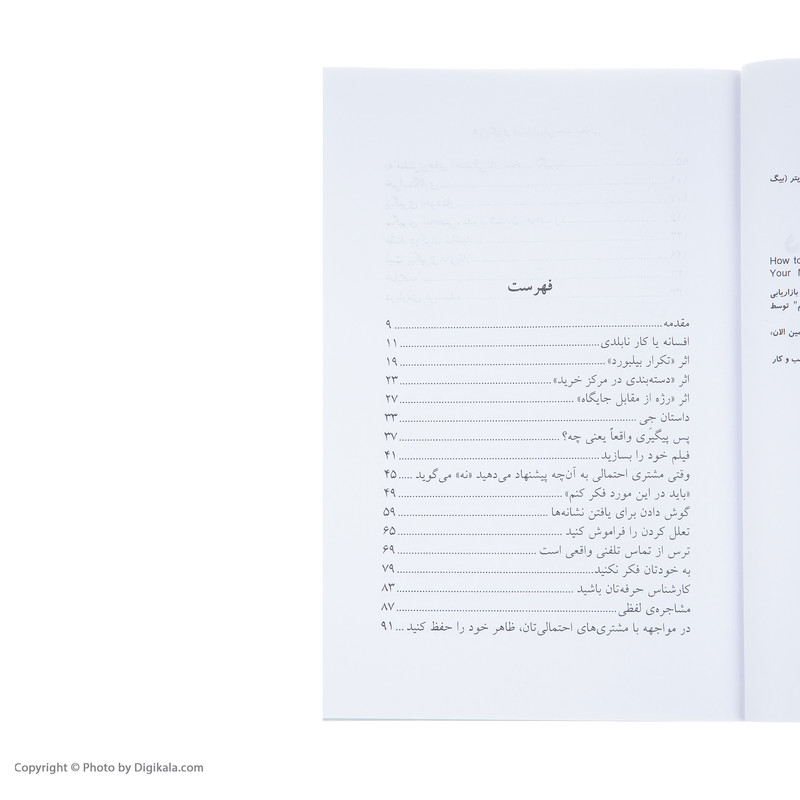 فهرست
مقدمه ........ ۹
افسانه یا کار نابلدی ........ ۱۱
اثر «تکرار بیلبورد» ........ ۱۹
اثر «دسته‌بندی در مرکز خرید» ........ ۲۳
اثر «رژه از مقابل جایگاه» ........ ۲۷
داستان جِی ........ ۳۳
پس پیگیری واقعاً یعنی چه؟ ........ ۳۷
فیلم خود را بسازید ........ ۴۱
وقتی مشتری احتمالی به آن‌چه پیشنهاد می‌دهید «نه» می‌گوید ..... ۴۵
«باید در این مورد فکر کنم» ........ ۴۹
گوش دادن برای یافتن نشانه‌ها ........ ۵۹
تعلل کردن را فراموش کنید ........ ۶۵
ترس از تماس تلفنی واقعی است ........ ۶۹
به خودتان فکر نکنید ........ ۷۹
کارشناس حرفه‌تان باشید ........ ۸۳
مشاجره‌ی لفظی ........ ۸۷
در مواجهه با مشتری‌های احتمالی‌تان، ظاهر خود را حفظ کنید ... ۹۱
(بیگ
How to
Your
بازاریابی
توسط
الان،
و کار
Copyright © Photo by Digikala.com